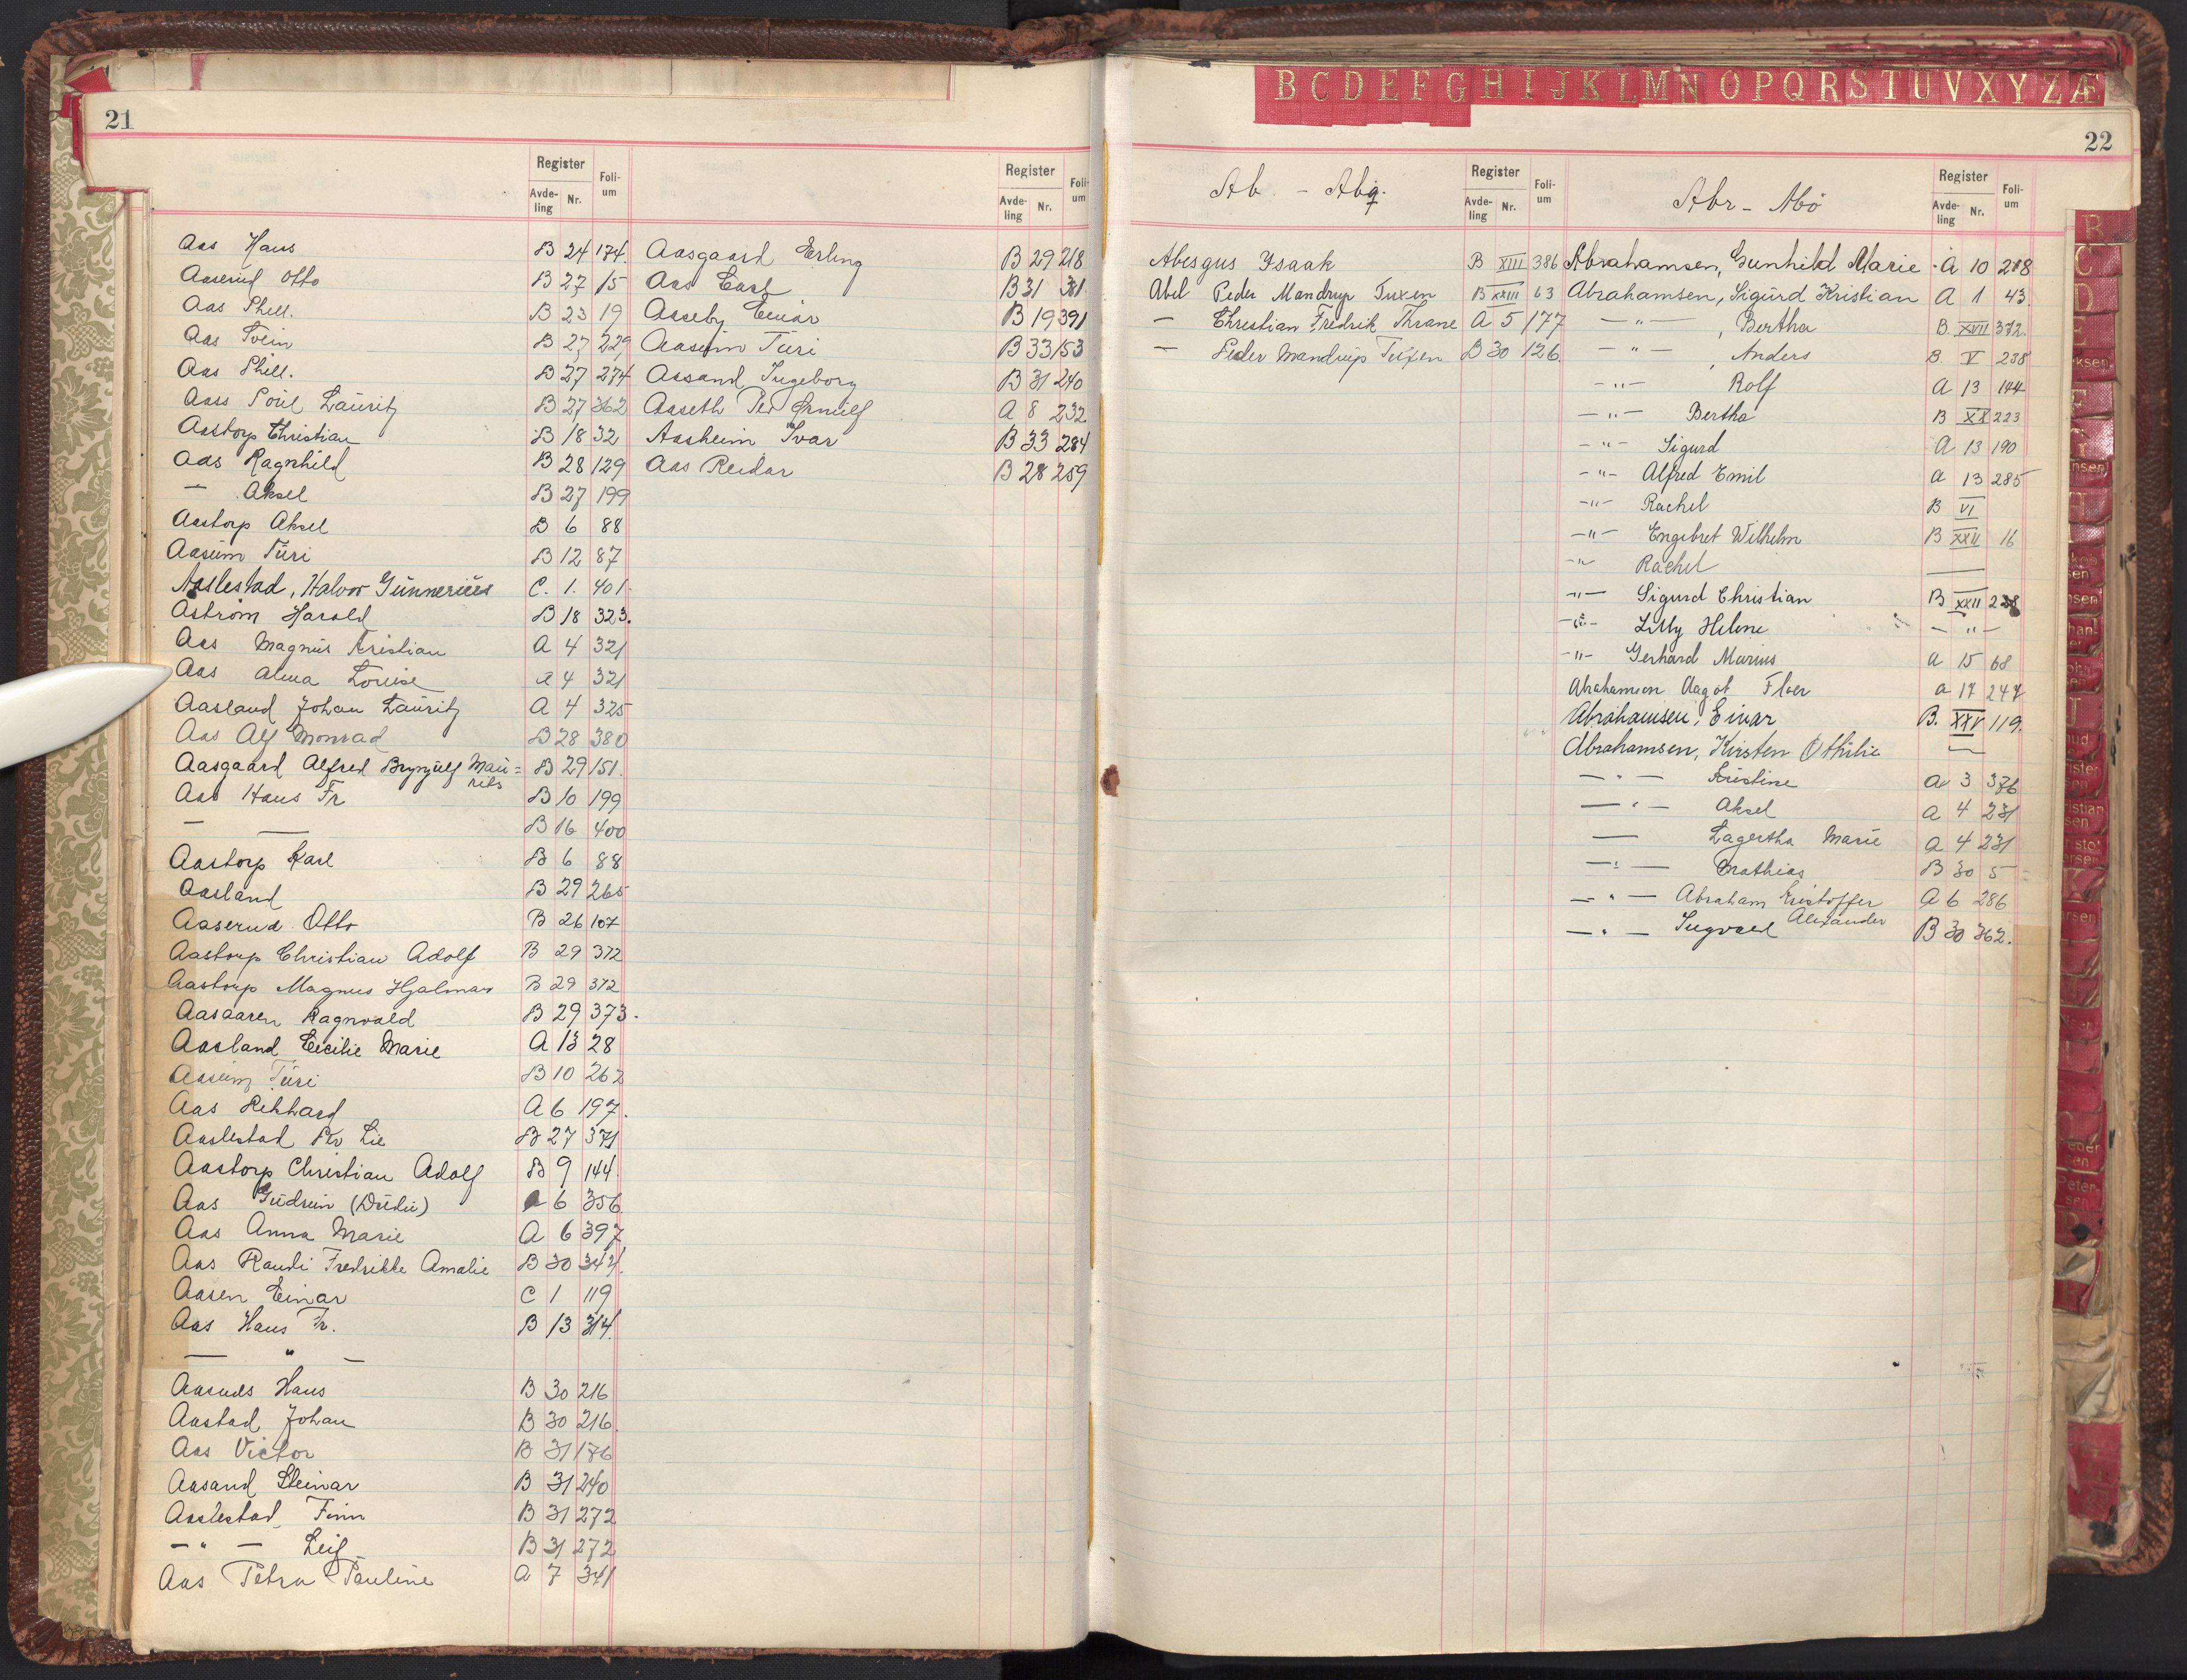 21
Register
Avde-
ling
Nr.
Foli-
um
Aas Hans B 24 174.
Aaserud Otto B 27 15
Aas Phill. B 23 19
Aas Svein B 27 229
Aas Phill. B 27 274
Aass Poul Lauritz B 27 362
Aastorp Christian B 18 32
Aas Ragnhild B 28 129
— Aksel B 27 199
Aastorp Aksel B 6 88
Aasum Turi B 12 87
Aaslestad, Halvor Gunnerius C. 1. 401.
Åstrøm Harald B 18 323.
Aas Magnus Kristian A 4 321
Aas Alma Louise A 4 321
Aasland Johan Lauritz A 4 325
Aas Alf Monrad B 28 380
Aasgaard Alfred Brynjulf Mau= B 29 151.
rits
Aas Hans Fr B 10 199
— — B 16 400
Aastorp Karl B 6 88
Aasland B 29 265
Aaserud Otto B 26 107
Aastorp Christian Adolf B 29 372
Aastorp Magnus Hjalmar B 29 372
Aasaaren Ragnvald B 29 373.
Aasland Cecilie Marie A 13 28
Aasum Turi B 10 262
Aas Rikhard A 6 197.
Aaslestad Lie B 27 371
Aastorp Christian Adolf B 9 144.
Aas Gudrun (Dudie) A 6 356
Aas Anna Marie A 6 397
Aas Randi Fredrikke Amalie B 30 344.
Aasen Einar C 1 119
Aas Hans Fr. B 13 314.
— " —
Hans B 30 216
Aastad Johan B 30 216.
Aas Victor B 31 176
Aasand Steinar B 31 240
Aaslestad, Finn B 31 272
— " — Leif B 31 272
Aas Petra Pauline A 7 341
Register
Avde-
ling
Nr.
Foli-
um
Aasgaard Erling B 29 218
Aas Carl B 31 381.
Aaseby Einar B 19 391
Aasum Turi B 33 153
Aasand Ingeborg B 31 240
Aaseth Per Ørnulf A 8 232
Aasheim Ivar B 33 284
Aas Reidar B 28 259
B C D E F G H I J K L M N O P Q R S T U V X Y Z Æ
22
Ab. - Abq.
Register
Avde-
ling
Nr.
Foli-
um
Abesgus Isaak B XIII 386
Abel Peder Mandrup Tuxen B XXIII 63
— Christian Fredrik Thrane A 5 177
— Peder Mandrup Tuxen B 30 126
Abr - Abø
Register
Avde-
ling
Nr.
Foli-
um
Abrahamsen, Gunhild Marie A 10 218
Abrahamsen, Sigurd Kristian A 1 43.
— " — , Bertha B. XVII 372.
— " — , Anders B. V 238
— " — Rolf A 13 144
— " — Bertha B XX 223
— " — Sigurd A 13 190
— " — Alfred Emil A 13 285
— " — Rachel B VI
— " — Engebret Wilhelm B XXII 16
— " Rachel —
— " — Sigurd Christian B XXII
— " — Lilly Helene — " —
— " — Gerhard Marius A 15 68
Abrahamsen Aagot Floer A 17 247
Abrahamsen, Einar B. XXV 119.
Abrahamsen, Kirsten Othilie —
— " — Kristine A 3 376
— " — Aksel A 4 231
— Lagertha Marie A 4 231
— " — Mathias B 30 5
— " — Abraham Kristoffer A 6 286
Alexander
— " — Ingvald B 30 362.
B
C
D
E
Peter-
sen